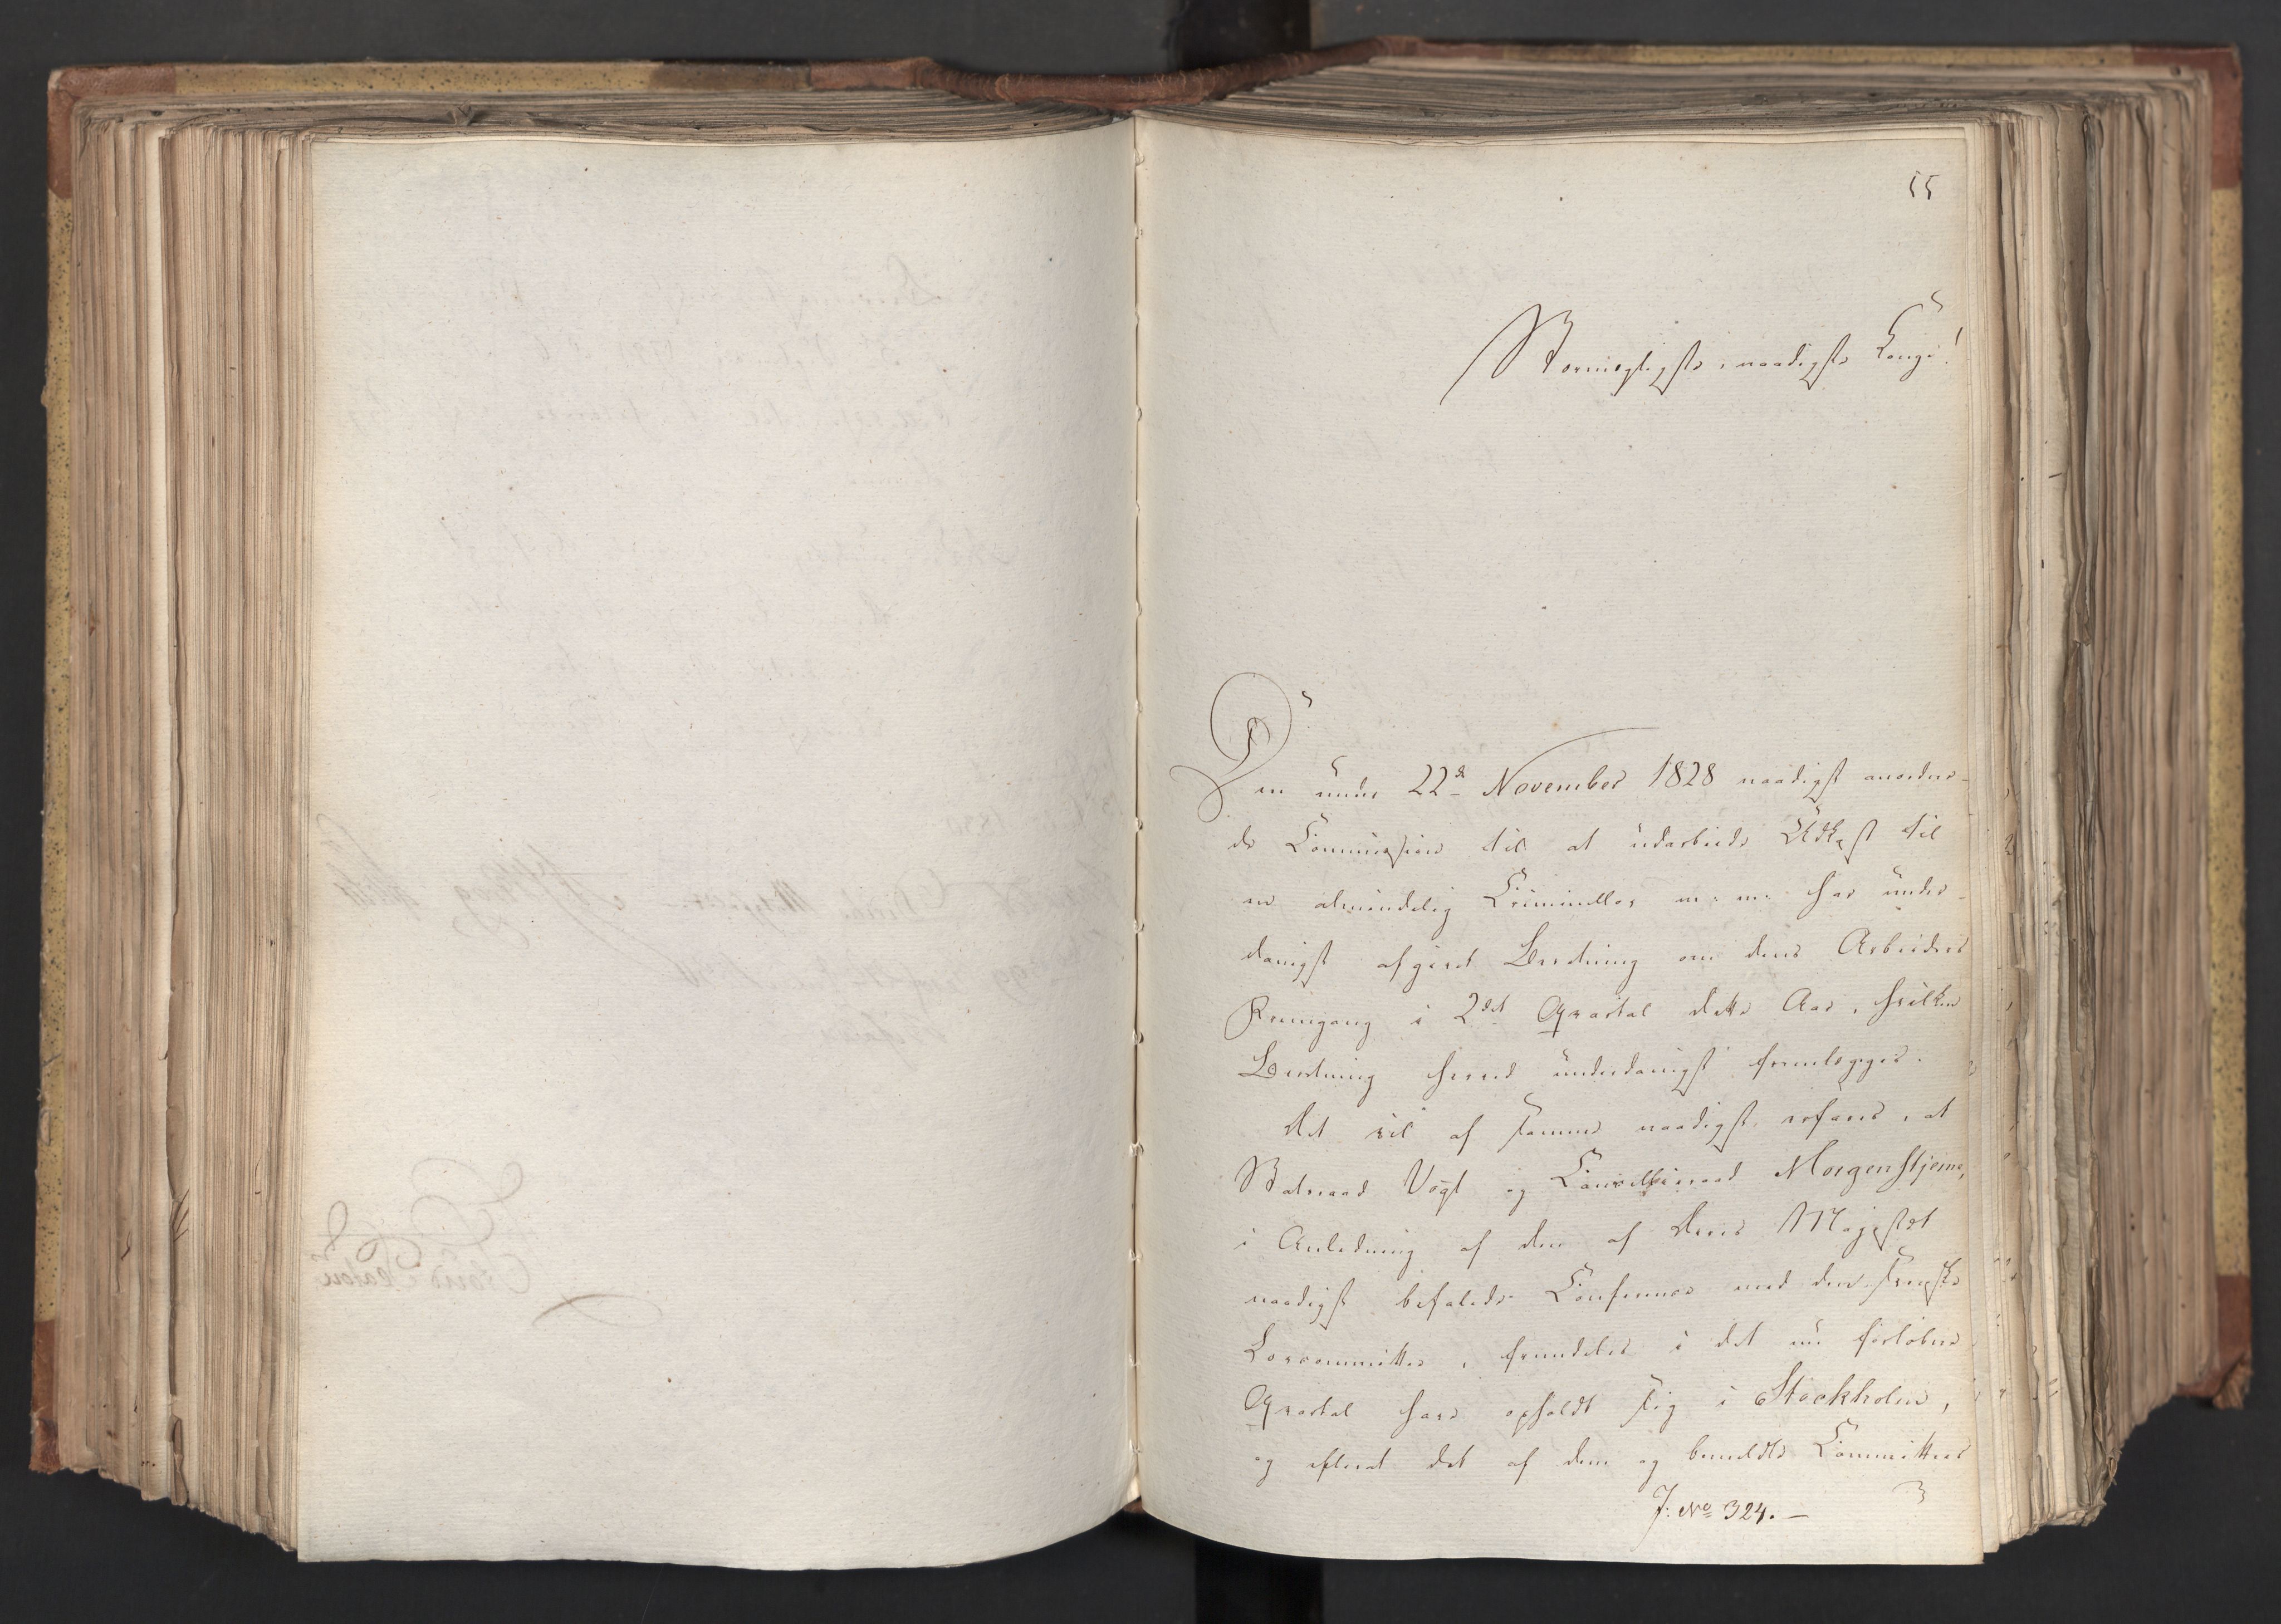 55
Stormægtigste, naadigste Konge!
Den under 22de November 1828 naadigst anordne-
de Commission til at udarbeide Udkast til
en almindelig Criminellov m: m: har under-
danigst afgivet Beretning om dens Arbeiders
Fremgang i 2det Qvartal dette Aar, hvilken
Beretning herved underdanigst fremlægges.
Det vil af samme naadigst erfares, at
Statsraad Vogt og Cancelliraad Morgenstjerne,
i Anledning af den af Deres Majestæt
naadigst befalede Conference med den svenske
Lovcommittee, fremdeles i det nu forløbne
Qvartal have opholdt sig i Stockholm,
og efterat det af dem og bemeldte Committees
J: No 324. —